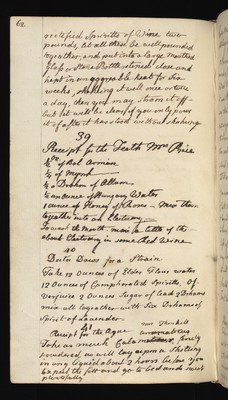 62
rectified Spiritts of Wine two
pounds, let all these be well pounded
together, and put into a large mouthed
Glass or Stone Bottle stoned close and
kept in an aggreable heat for Six
weeks, shakeing it well once or twice
a day, then you may strain it off
but it will be clear if you only pour
it of after it has stood without shakeing
39
Receipt for the Teeth Mrs Price
of Bol Armian
of Myrrh
a Drham of Allum
an ounce of Hungary Water
1 ounce of Honey of Roses - Mix them
together into an Electuary
To wash the Mouth mix a little of the
about Electuary in some Red Wine
40
Doctr Daws for a Strain
Take 12 ounces of Elder Flour water
12 Ounces of Camphorated Spiritts Of
Verjuice 2 Ounces Sugar of Lead 3 Drhams
mix all together with Six Drhams of
Spirit of Lavender
Receipt for the Ague
Take as much Calamus aromaticus finely
powdered as will lay upon a shilling
in any liquid about 2 hours before you
expect the fitt and go to bed and sweat
plentifully